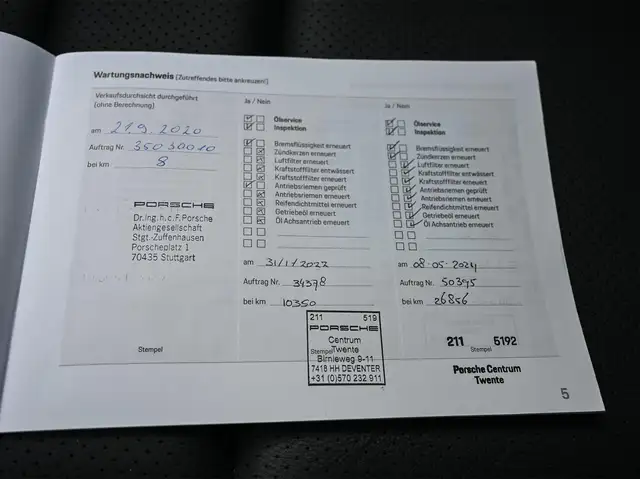 Wartungsnachweis (Zutreffendes bitte ankreuzen!)
Verkaufsdurchsicht durchgeführt
(ohne Berechnung)
am 21.9.2020
Auftrag Nr. 35030010
bei km 8
PORSCHE
Dr.Ing.h.c.F.Porsche
Aktiengesellschaft
Stgt.-Zuffenhausen
Porscheplatz 1
70435 Stuttgart
Stempel
Ja / Nein
Ölservice
Inspektion
Bremsflüssigkeit erneuert
Zündkerzen erneuert
Luftfilter erneuert
Kraftstofffilter entwässert
Kraftstofffilter erneuert
Antriebsriemen geprüft
Antriebsriemen erneuert
Reifendichtmittel erneuert
Getriebeöl erneuert
Öl Achsantrieb erneuert
am 31/1/2022
Auftrag Nr. 34378
bei km 10350
211 519
PORSCHE
Centrum
Stempel Twente
Birnieweg 9-11
7418 HH DEVENTER
+31 (0)570 232 911
Ja / Nein
Ölservice
Inspektion
Bremsflüssigkeit erneuert
Zündkerzen erneuert
Luftfilter erneuert
Kraftstofffilter entwässert
Kraftstofffilter erneuert
Antriebsriemen geprüft
Antriebsriemen erneuert
Reifendichtmittel erneuert
Getriebeöl erneuert
Öl Achsantrieb erneuert
am 08-05-2024
Auftrag Nr. 50395
bei km 26856
211 5192
Stempel
Porsche Centrum
Twente
5